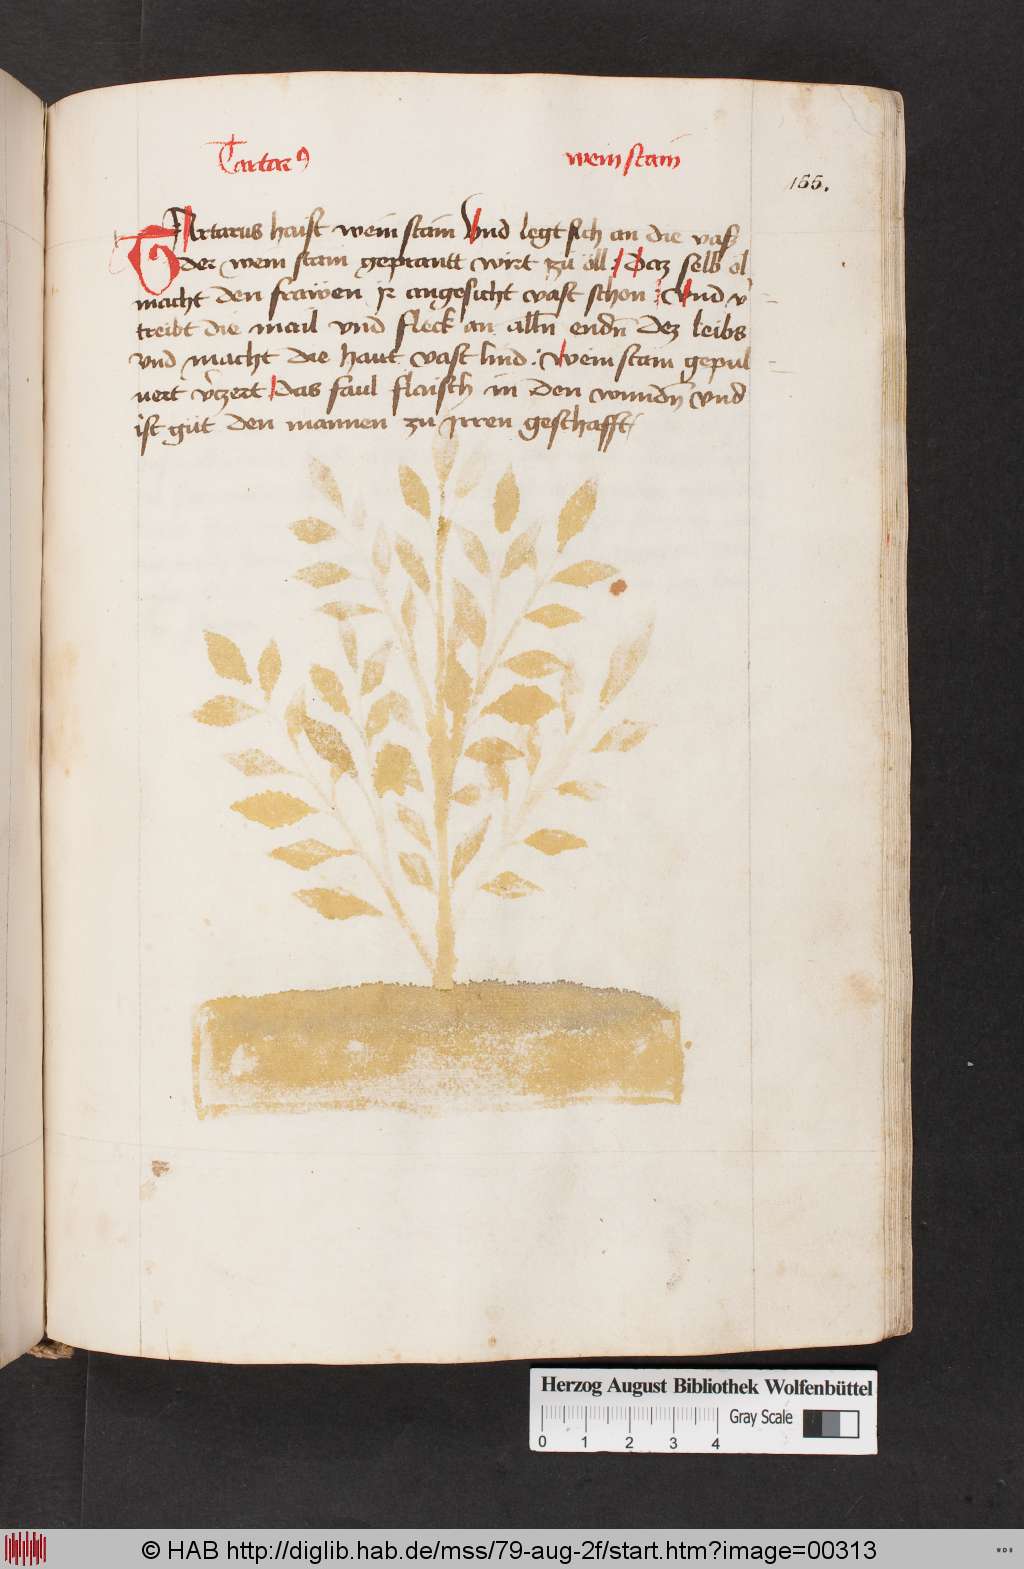 Tartarꝯ weinstain
155.
TArtarus haist weinstain Vnd legt sich an die vasz
der weinstain geprantt wirt zü öll : Daz selb öl
macht den frawen jr angesicht vast schon : Vnd v̾
treibt die mail vnd fleck an alln̄ endn̄ dez leibs
vnd macht die haut vast lind : weinstain gepul
uert v̾zert das faul flaisch in den wundn̄ vnd
ist güt den mannen zu jrren geschafft
Herzog August Bibliothek Wolfenbüttel
Gray Scale
0 1 2 3 4
© HAB http://diglib.hab.de/mss/79-aug-2f/start.htm?image=00313